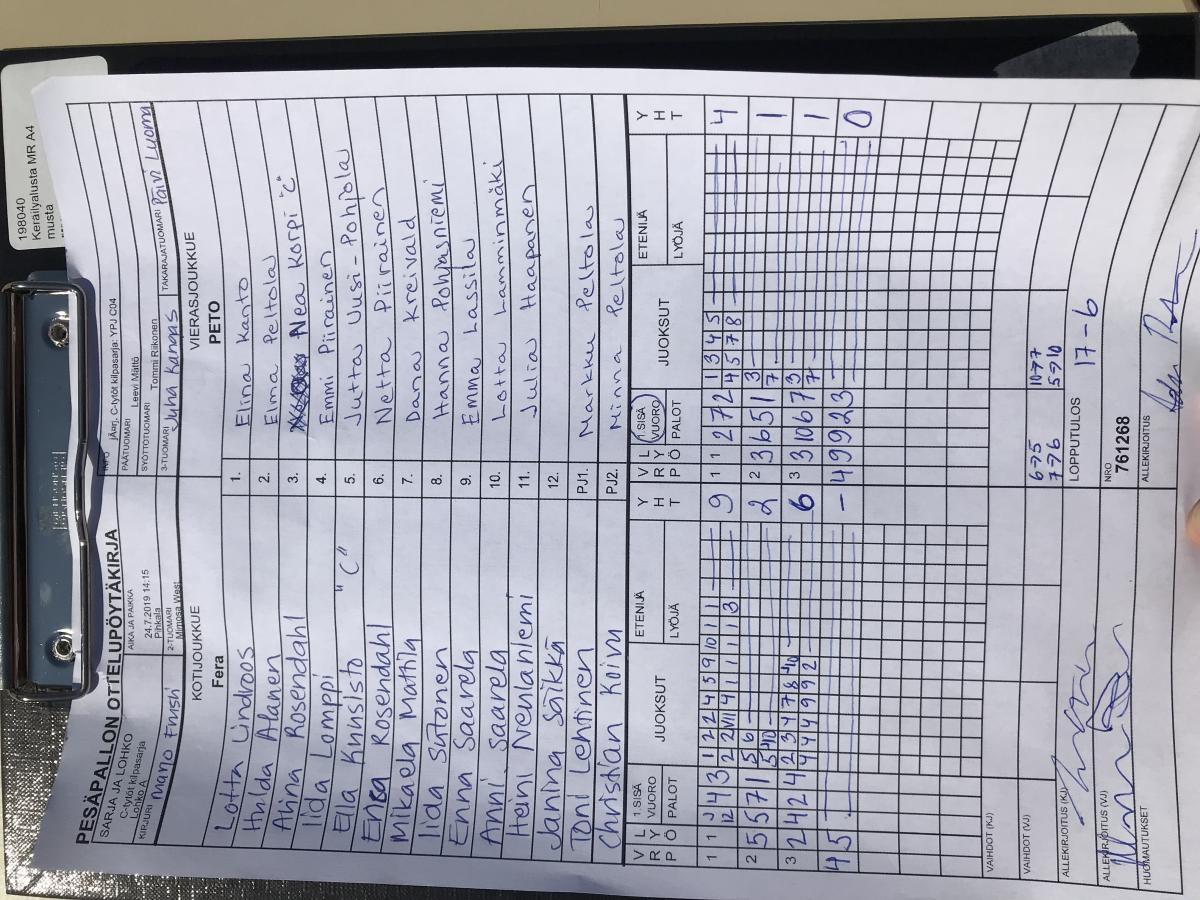 198040
Keräilyalusta MR A4
musta
PESÄPALLON OTTELUPÖYTÄKIRJA
SARJA JA LOHKO
C-tytöt kilpasarja
Lohko A
AIKA JA PAIKKA
24.7.2019 14:15
Pihkala
C-tytöt kilpasarja: YPJ C04
PÄÄTUOMARI
Leevi Mättö
SYÖTTÖTUOMARI
Tommi Riikonen
KIRJURI
2-TUOMARI
Mimosa West
3-TUOMARI
Juha Kangas
TAKARAJATUOMARI
Päivi Luoma
KOTIJOUKKUE
VIERASJOUKKUE
Fera
PETO
Lotta Lindroos 1. Elina Kanto
Hulda Alanen 2. Elma Peltola
Alina Rosendahl 3. Nea Korpi "C"
Iida Lomppi 4. Emmi Piirainen
Ella Kunsisto "C" 5. Jutta Uusi-Pohjola
Enna Rosendahl 6. Netta Piirainen
Mikaela Mattila 7. Dana Kreivald
Iida Sutonen 8. Hanna Pohjasniemi
Enna Saarela 9. Emma Lassila
Anni Saarela 10. Lotta Lamminmäki
Heini Nenlanlemi 11. Julia Haapanen
Janina Säikkä 12.
Toni Lehtinen PJ1. Markku Peltola
Christian Koivu PJ2. Minna Peltola
V R P L Y Ö 1.SISÄ VUORO PALOT JUOKSUT ETENIJÄ LYÖJÄ Y H T V R P L Y Ö 1.SISÄ VUORO PALOT JUOKSUT ETENIJÄ LYÖJÄ Y H T
9 1 1 2 7 2 1 3 4 5 4
4 5 7 8
2 5 5 7 1 5 6 2 2 3 6 5 1 3 1
7
3 2 4 2 4 2 3 4 7 8 10 6 3 3 10 6 7 3 1
4 4 4 9 9 2 7
4 5 - 4 9 9 2 3 0
VAIHDOT (KJ)
VAIHDOT (VJ)
6->5
7->6
10->7
5->10
LOPPUTULOS
17-6
ALLEKIRJOITUS (KJ)
ALLEKIRJOITUS (VJ)
NRO
761268
HUOMAUTUKSET
ALLEKIRJOITUS